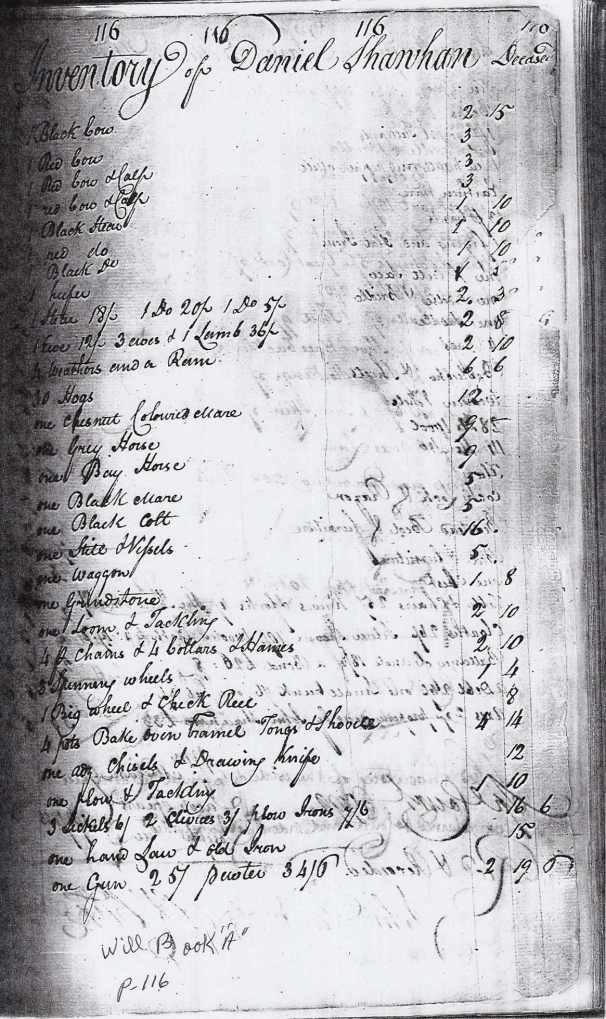 116 116 116 110
Inventory of Daniel Shawhan Deceased
1 Black Cow 2 15
1 Red Cow 3
1 Red Cow & Calf 3
1 red Cow & Calf 3
1 Black Steer 1 10
1 red do 1 10
1 Black Do 1 10
1 heifer
1 Steer 18/ 1 Do 20/ 1 Do 5/ 2 3
1 Ewe 12/ 3 ewes & 1 Lamb 36/ 2 8
4 Weathers and a Ram 2 10
10 Hogs 6 6
one Chesnut Coloured Mare 12
one Grey Horse 9
one Bay Horse 9
one Black Mare 5
one Black Colt 5
one Still & Vessels 16
one Waggon 5
one Grindstone 1 8
one Loom & Tackling 2 10
4 Chains & 4 Collars & Hames 2 10
3 Spinning wheels 1 4
1 Big wheel & Check Reel 8
4 pots Bake oven Tramel Tongs & Shovel 4 14
one adz Chisels & Drawing Knife 12
one plow & Tackling 1 10
3 Sickels 6/ 2 Clivices 3/ plow Irons 7/6 16 6
one hand Saw & old Iron 15
one Gun 25/ pewter 34/6 2 19 6
Will Book "A"
p-116